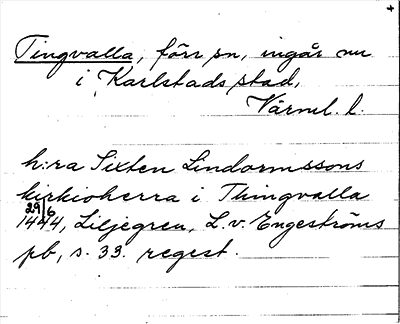 Tingvalla, förr sn, ingår nu
i Karlstads stad,
Värml. l.
h:ra Sixten Lindormssons
kirkioherra i Thingvalla
29/6
1444, Liljegren, L. v. Engeströms
pb, s. 33. regest.